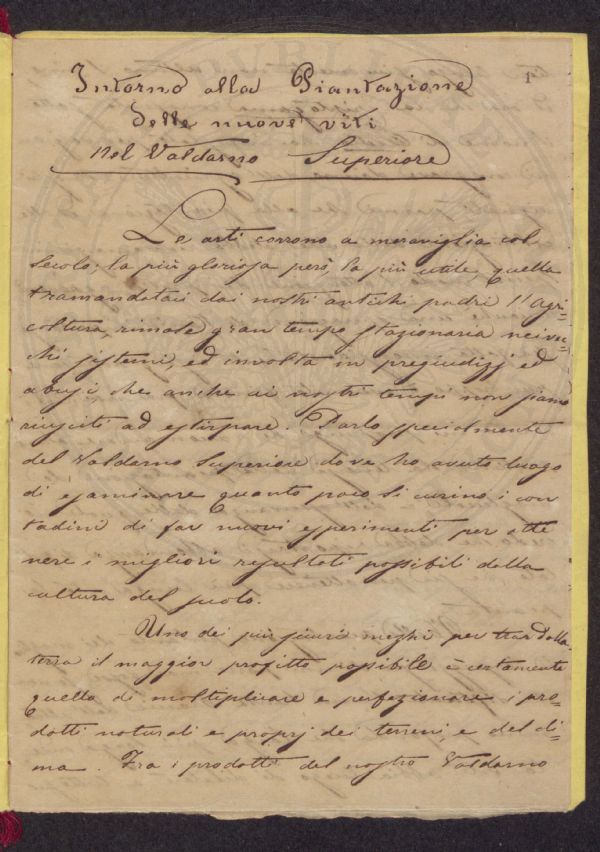 1
Intorno alla Piantazione
delle nuove viti
nel Valdarno Superiore
Le arti corrono a meraviglia col
secolo; la più gloriosa però, la più utile, quella
tramandataci dai nostri antichi padri l'agri=
coltura, rimase gran tempo stazionaria nei vec=
chj sistemi, ed involta in pregiudizj ed
abusi, che anche ai nostri tempi non siamo
riusciti ad estirpare. Parlo specialmente
del Valdarno Superiore dove ho avuto luogo
di esaminare quanto poco si curino i con
tadini di far nuovi esperimenti per otte
nere i migliori resultati possibili dalla
cultura del suolo.
Uno dei più sicuri mezhi per trar dalla
terra il maggior profitto possibile è certamente
quello di moltiplicare e perfezionare i pro=
dotti naturali e proprj dei terreni e del cli=
ma. Fra i prodotti del nostro Valdarno